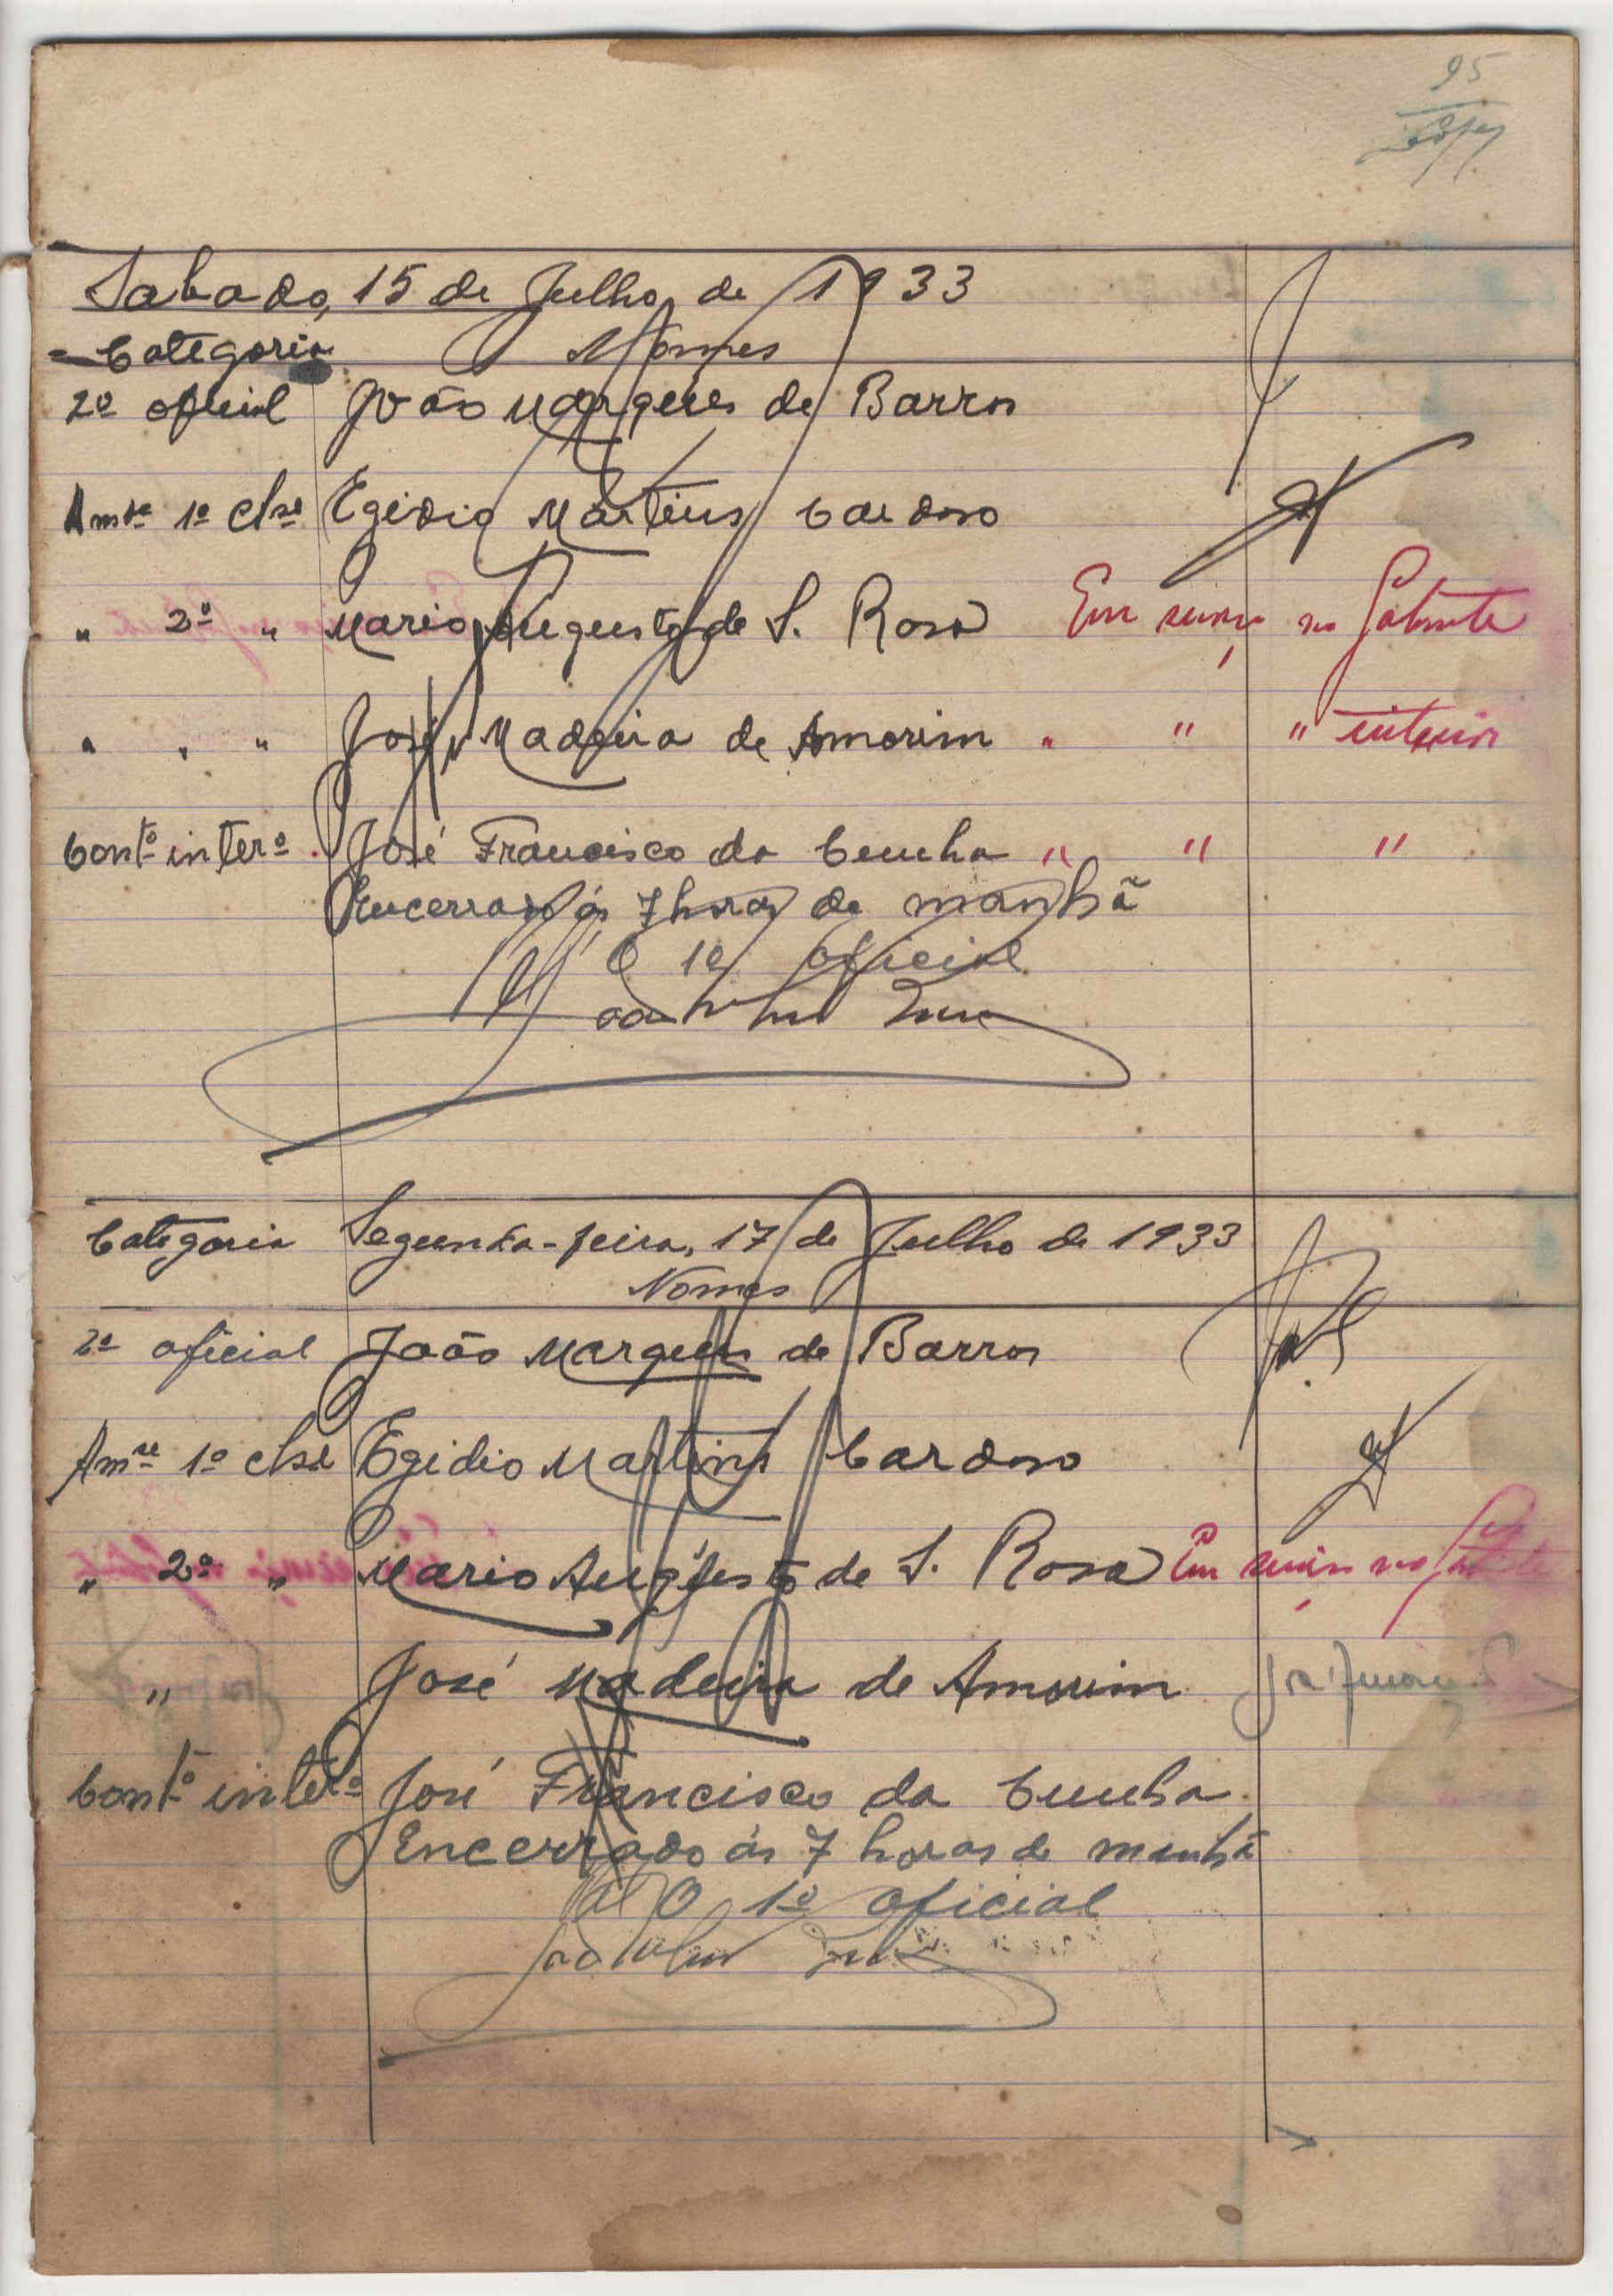 95
Sabado, 15 de Julho de 1933
Categoria Nomes
2º oficial João Marques de Barros
Amse 1º clse Egidio Martins Cardoso
" 2º " Mario Augusto de S. Rosa Em no Gabinete
" " " José Madeira de Amorim " " " interior
Conto intero José Francisco da Cunha " " "
Encerrado ás 7 horas da manhã
O 1º oficial
Categoria Segunda-feira, 17 de Julho de 1933
Nomes
2º oficial João Marques de Barros
Amse 1º clse Egidio Martins Cardoso
" 2º " Mario Augusto de S. Rosa Em no
" José Madeira de Amorim
Conto intero José Francisco da Cunha
Encerrado ás 7 horas da manhã
O 1º oficial